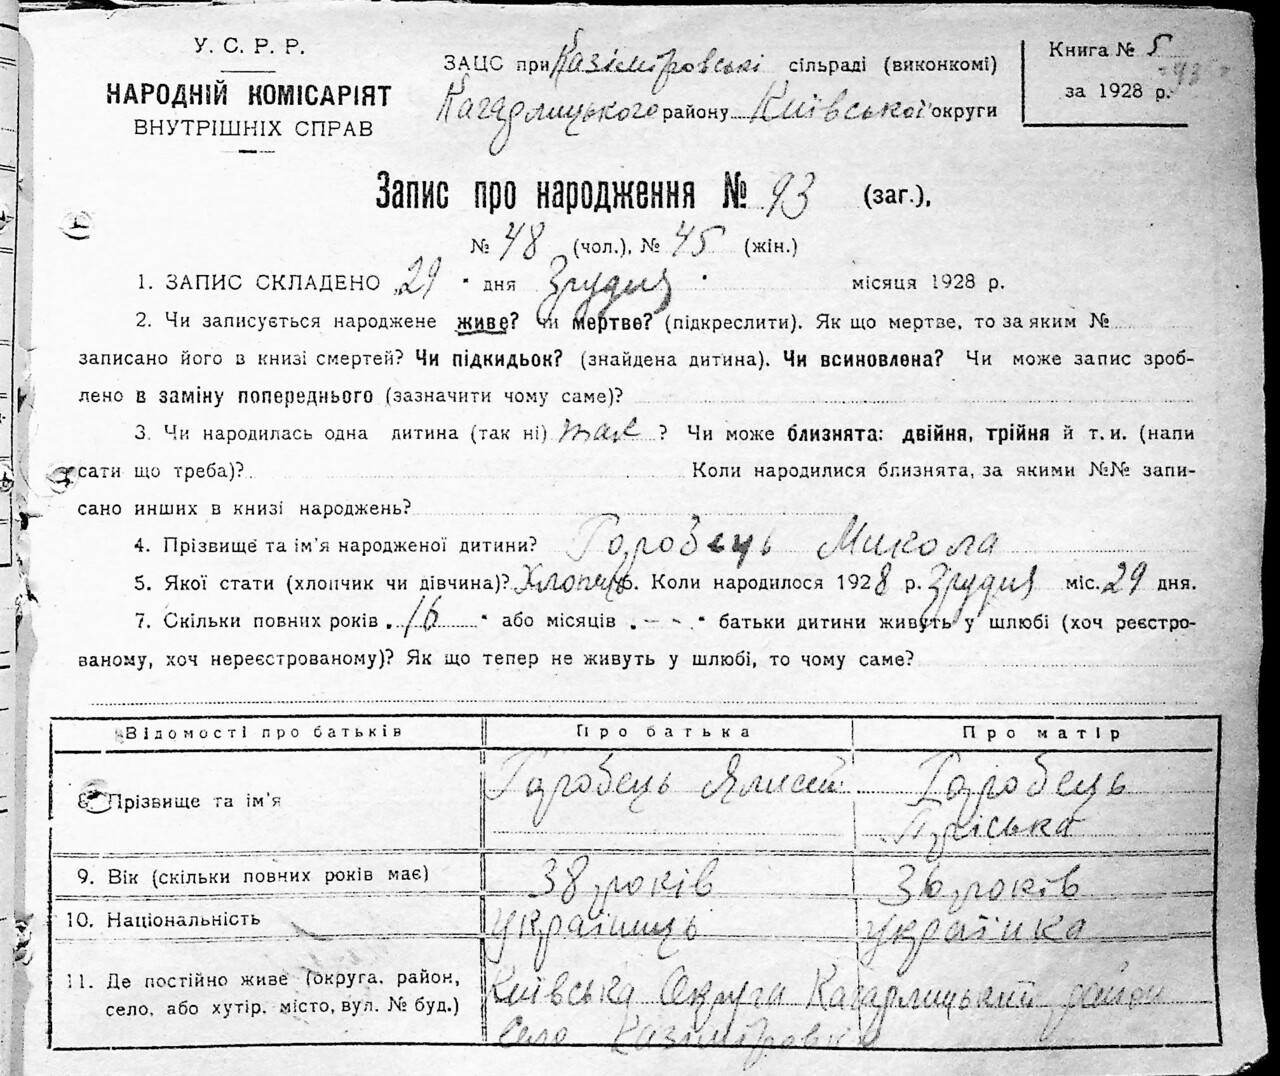 У. С. Р. Р.
НАРОДНІЙ КОМІСАРІЯТ
ВНУТРІШНІХ СПРАВ
ЗАЦС при Казімировські сільраді (виконкомі)
Кагарлицького району Київської округи
Книга № 5
за 1928 р.
Запис про народження № 93 (заг.),
№ 48 (чол.), № 45 (жін.)
1. ЗАПИС СКЛАДЕНО „29" дня Грудня місяця 1928 р.
2. Чи записується народжене живе? чи мертве? (підкреслити). Як що мертве, то за яким №
записано його в книзі смертей? Чи підкидьок? (знайдена дитина). Чи всиновлена? Чи може запис зроб-
лено в заміну попереднього (зазначити чому саме)?
3. Чи народилась одна дитина (так ні) так ? Чи може близнята: двійня, трійня й т. и. (напи
сати що треба)? Коли народилися близнята, за якими №№ запи-
сано инших в книзі народжень?
4. Прізвище та ім'я народженої дитини? Горобець Микола
5. Якої стати (хлопчик чи дівчина)? Хлопець. Коли народилося 1928 р. Грудня міс. 29 дня.
7. Скільки повних років „16" або місяців „ - - " батьки дитини живуть у шлюбі (хоч реєстро-
ваному, хоч нереєстрованому)? Як що тепер не живуть у шлюбі, то чому саме?
Відомості про батьків Про батька Про матір
8. Прізвище та ім'я Горобець Горобець
Пріська
9. Вік (скільки повних років має) 38 років 36 років
10. Національність українець українка
11. Де постійно живе (округа, район, Київська Округа Кагарлицький район
село, або хутір, місто, вул. № буд.) Село Казімировка